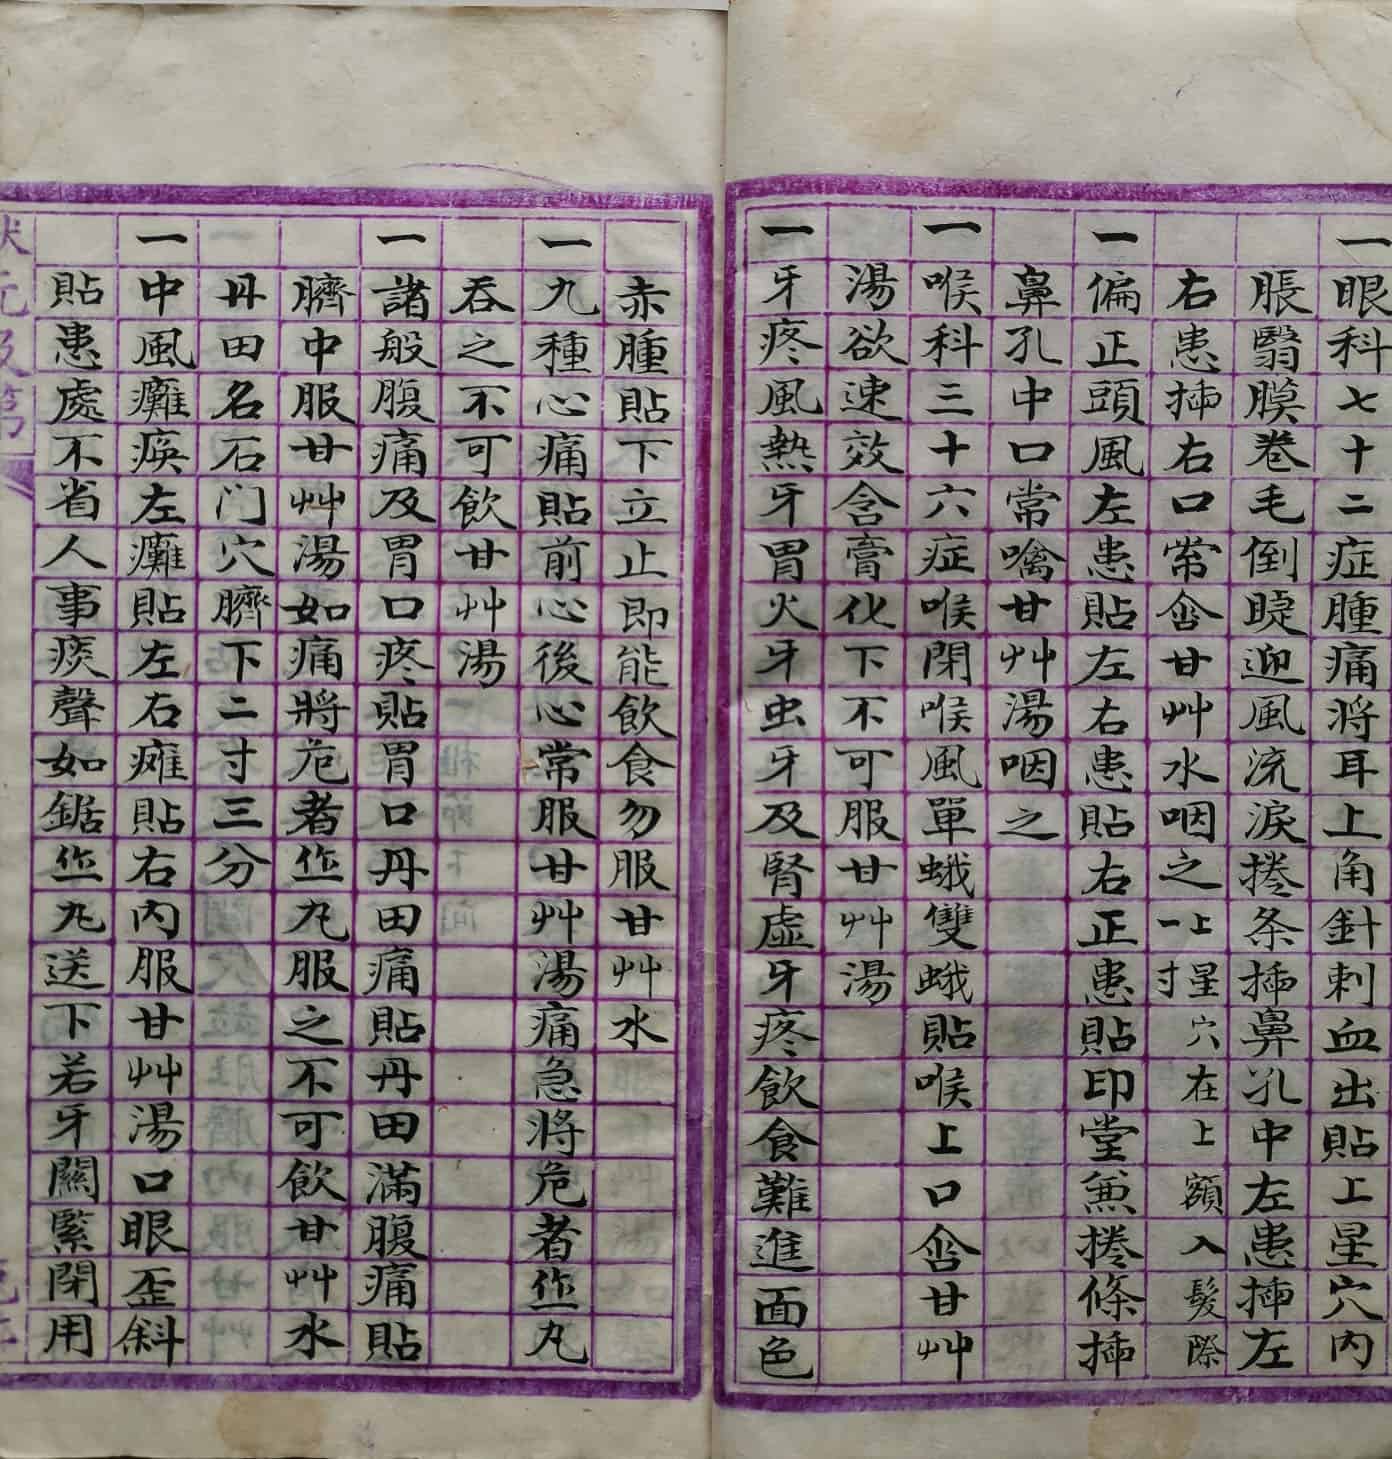 一眼科七十二症腫痛將耳上角針刺血出貼上星穴内
脹翳膜卷毛倒睫迎風流淚捲条插鼻孔中左患插左
右患插右口常含甘艸水咽之上星穴在上額入髮際一寸
一偏正頭風左患貼左右患貼右正患貼印堂兼捲條插
鼻孔中口常噙甘艸湯咽之
一喉科三十六症喉閉喉風單蛾雙蛾貼喉上口含甘艸
湯欲速效含膏化下不可服甘艸湯
一牙疼風熱牙胃火牙虫牙及腎虛牙疼飲食難進面色
赤腫貼下立止即能飲食勿服甘艸水
一九種心痛貼前心後心常服甘艸湯痛急將危者作丸
吞之不可飲甘艸湯
一諸般腹痛及胃口疼貼胃口丹田痛貼丹田滿腹痛貼
臍中服甘艸湯如痛將危者作丸服之不可飲甘艸水
丹田名石门穴臍下二寸三分
一中風癱瘓左癱貼左右癱貼右内服甘艸湯口眼歪斜
貼患處不省人事痰聲如鋸作丸送下若牙關緊閉用